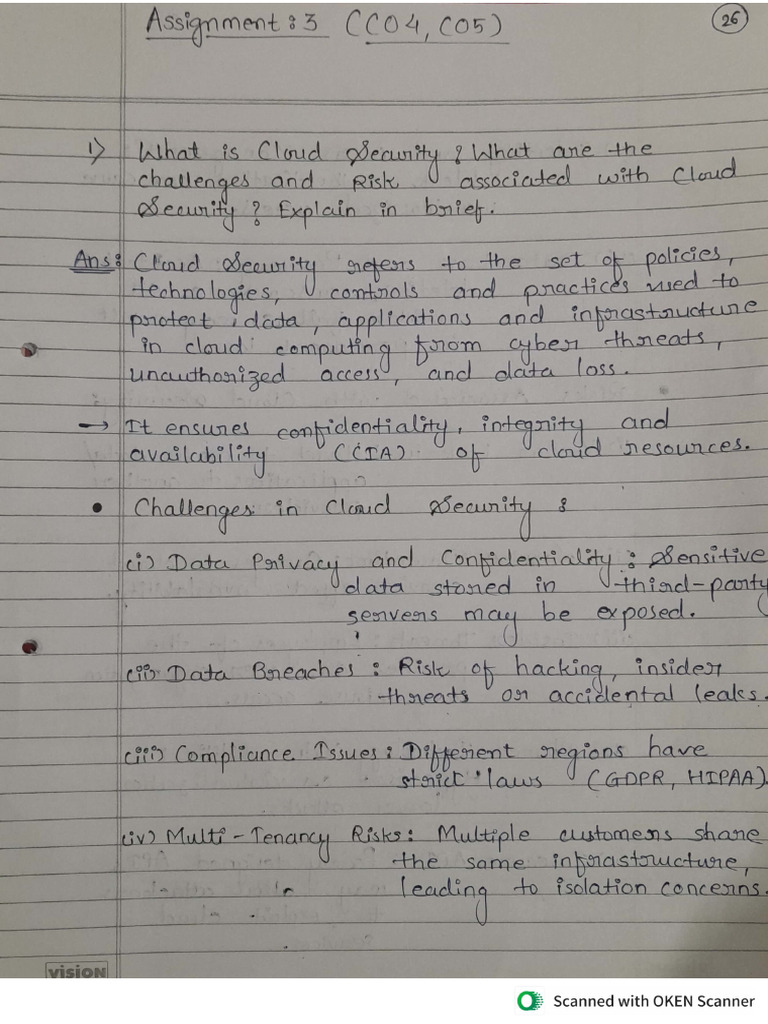 Assignment : 3 (CO4, CO5)
26
1) What is Cloud Security ? What are the
challenges and Risk associated with Cloud
Security ? Explain in brief.
Ans : Cloud Security refers to the set of policies,
technologies, controls and practices used to
protect data, applications and infrastructure
in cloud computing from cyber threats,
unauthorized access, and data loss.
→ It ensures confidentiality, integrity and
availability (CIA) of cloud resources.
• Challenges in Cloud Security :
(i) Data Privacy and Confidentiality : Sensitive
data stored in third-party
servers may be exposed.
(ii) Data Breaches : Risk of hacking, insider
threats or accidental leaks.
(iii) Compliance Issues : Different regions have
strict laws (GDPR, HIPAA).
(iv) Multi-Tenancy Risks : Multiple customers share
the same infrastructure,
leading to isolation concerns.
vision
Scanned with OKEN Scanner